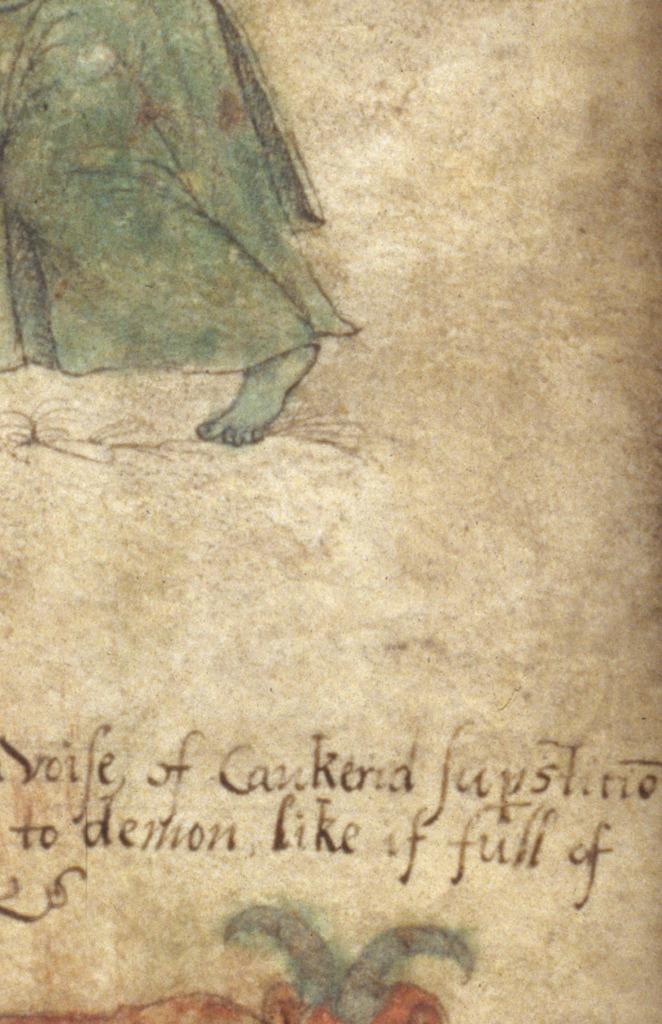 voise, of Cankerid sup̱stitiō
to demon, like if full of